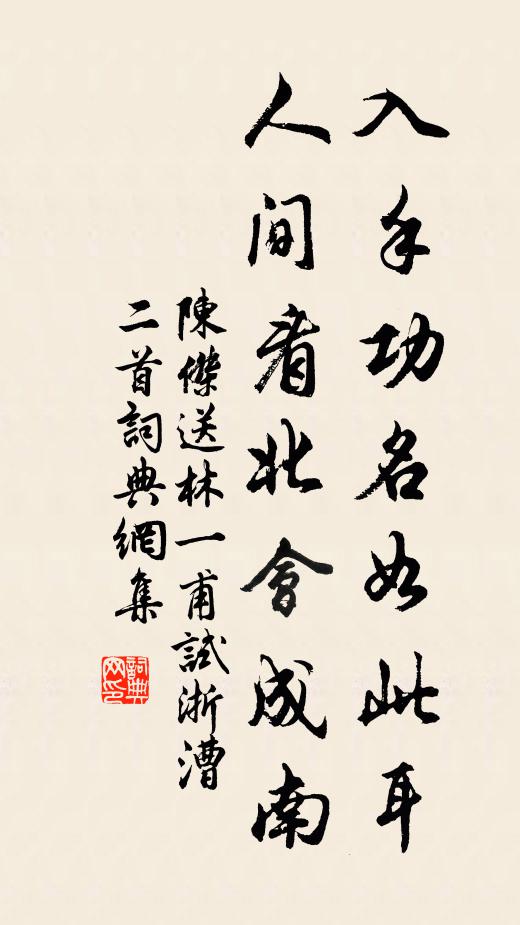 入手功名如此耳
人間看北會成南
陳傑送林一甫試浙漕
二首詞典網集
詞典网印